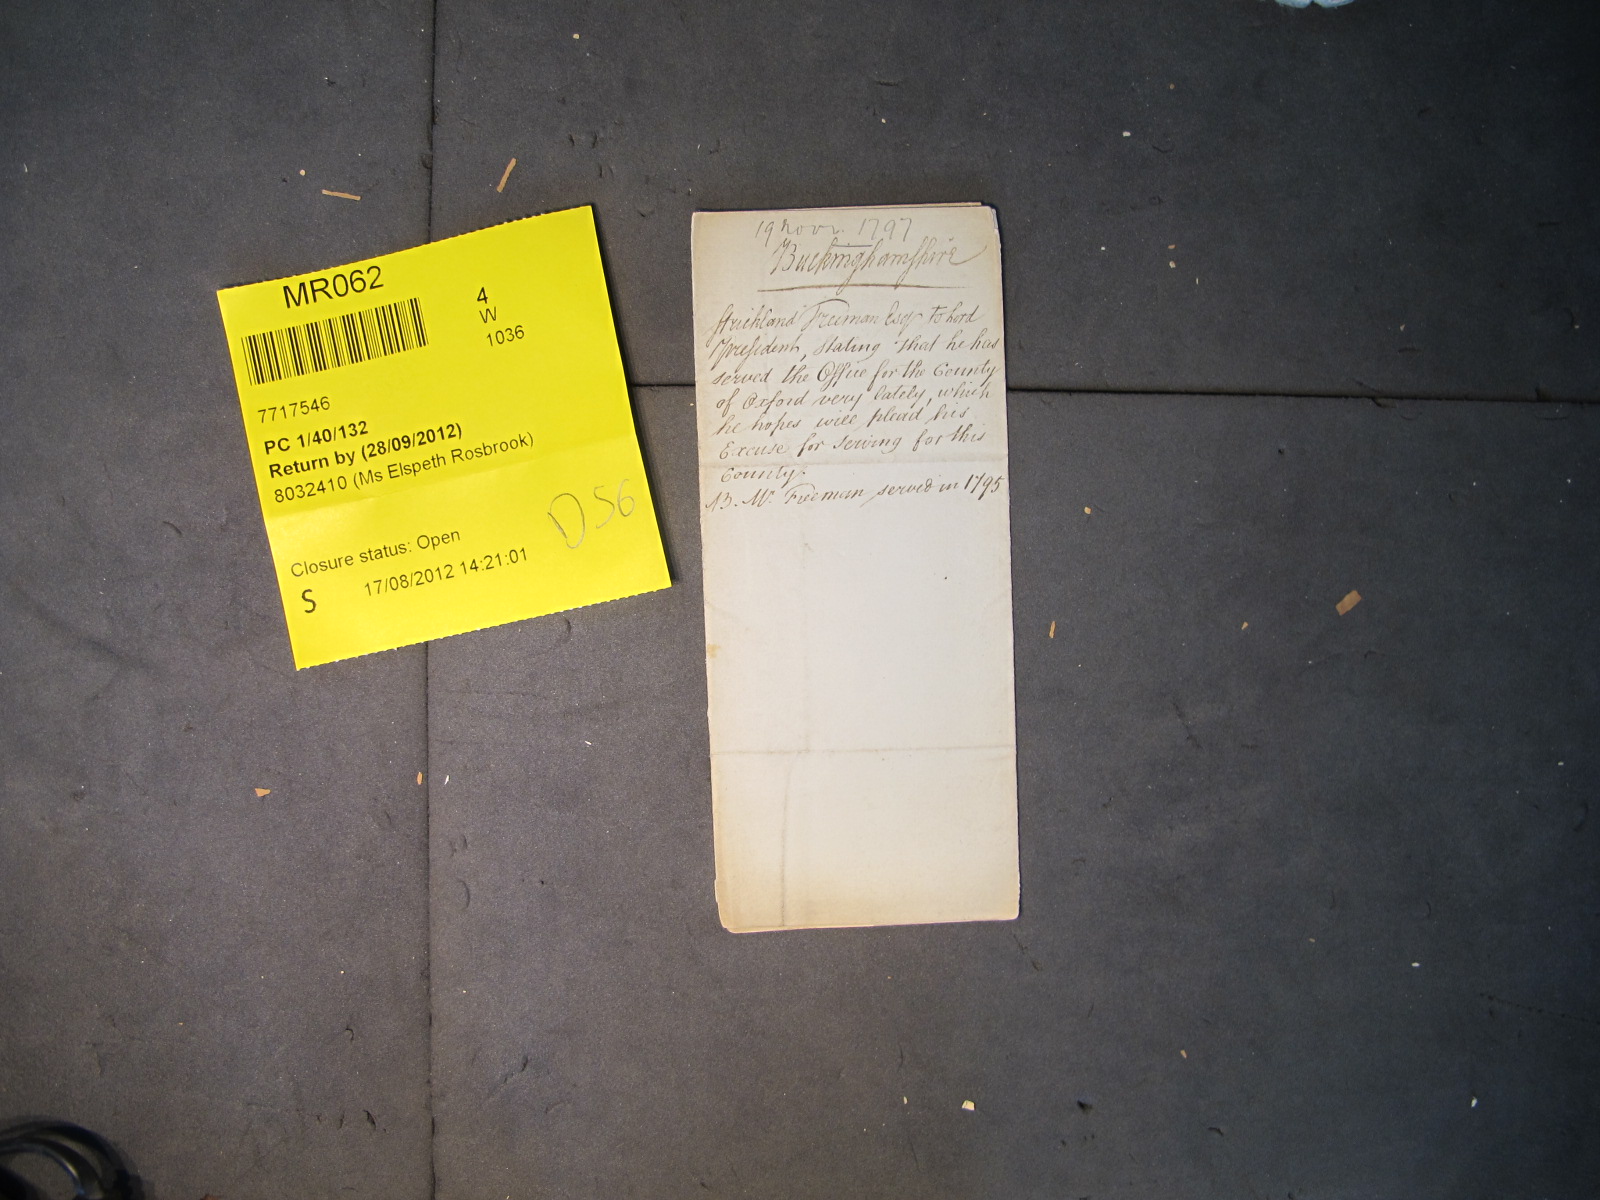 MR062
4
W
1036
7717546
PC 1/40/132
Return by (28/09/2012)
8032410 (Ms Elspeth Rosbrook)
D56
Closure status: Open
S 17/08/2012 14:21:01
19 Novr. 1797
Buckinghamshire
Strickland Freeman Esqr to Lord
President, stating that he has
served the Office for the County
of Oxford very lately, which
he hopes will plead his
Excuse for serving for this
County.
NB. Mr. Freeman served in 1795